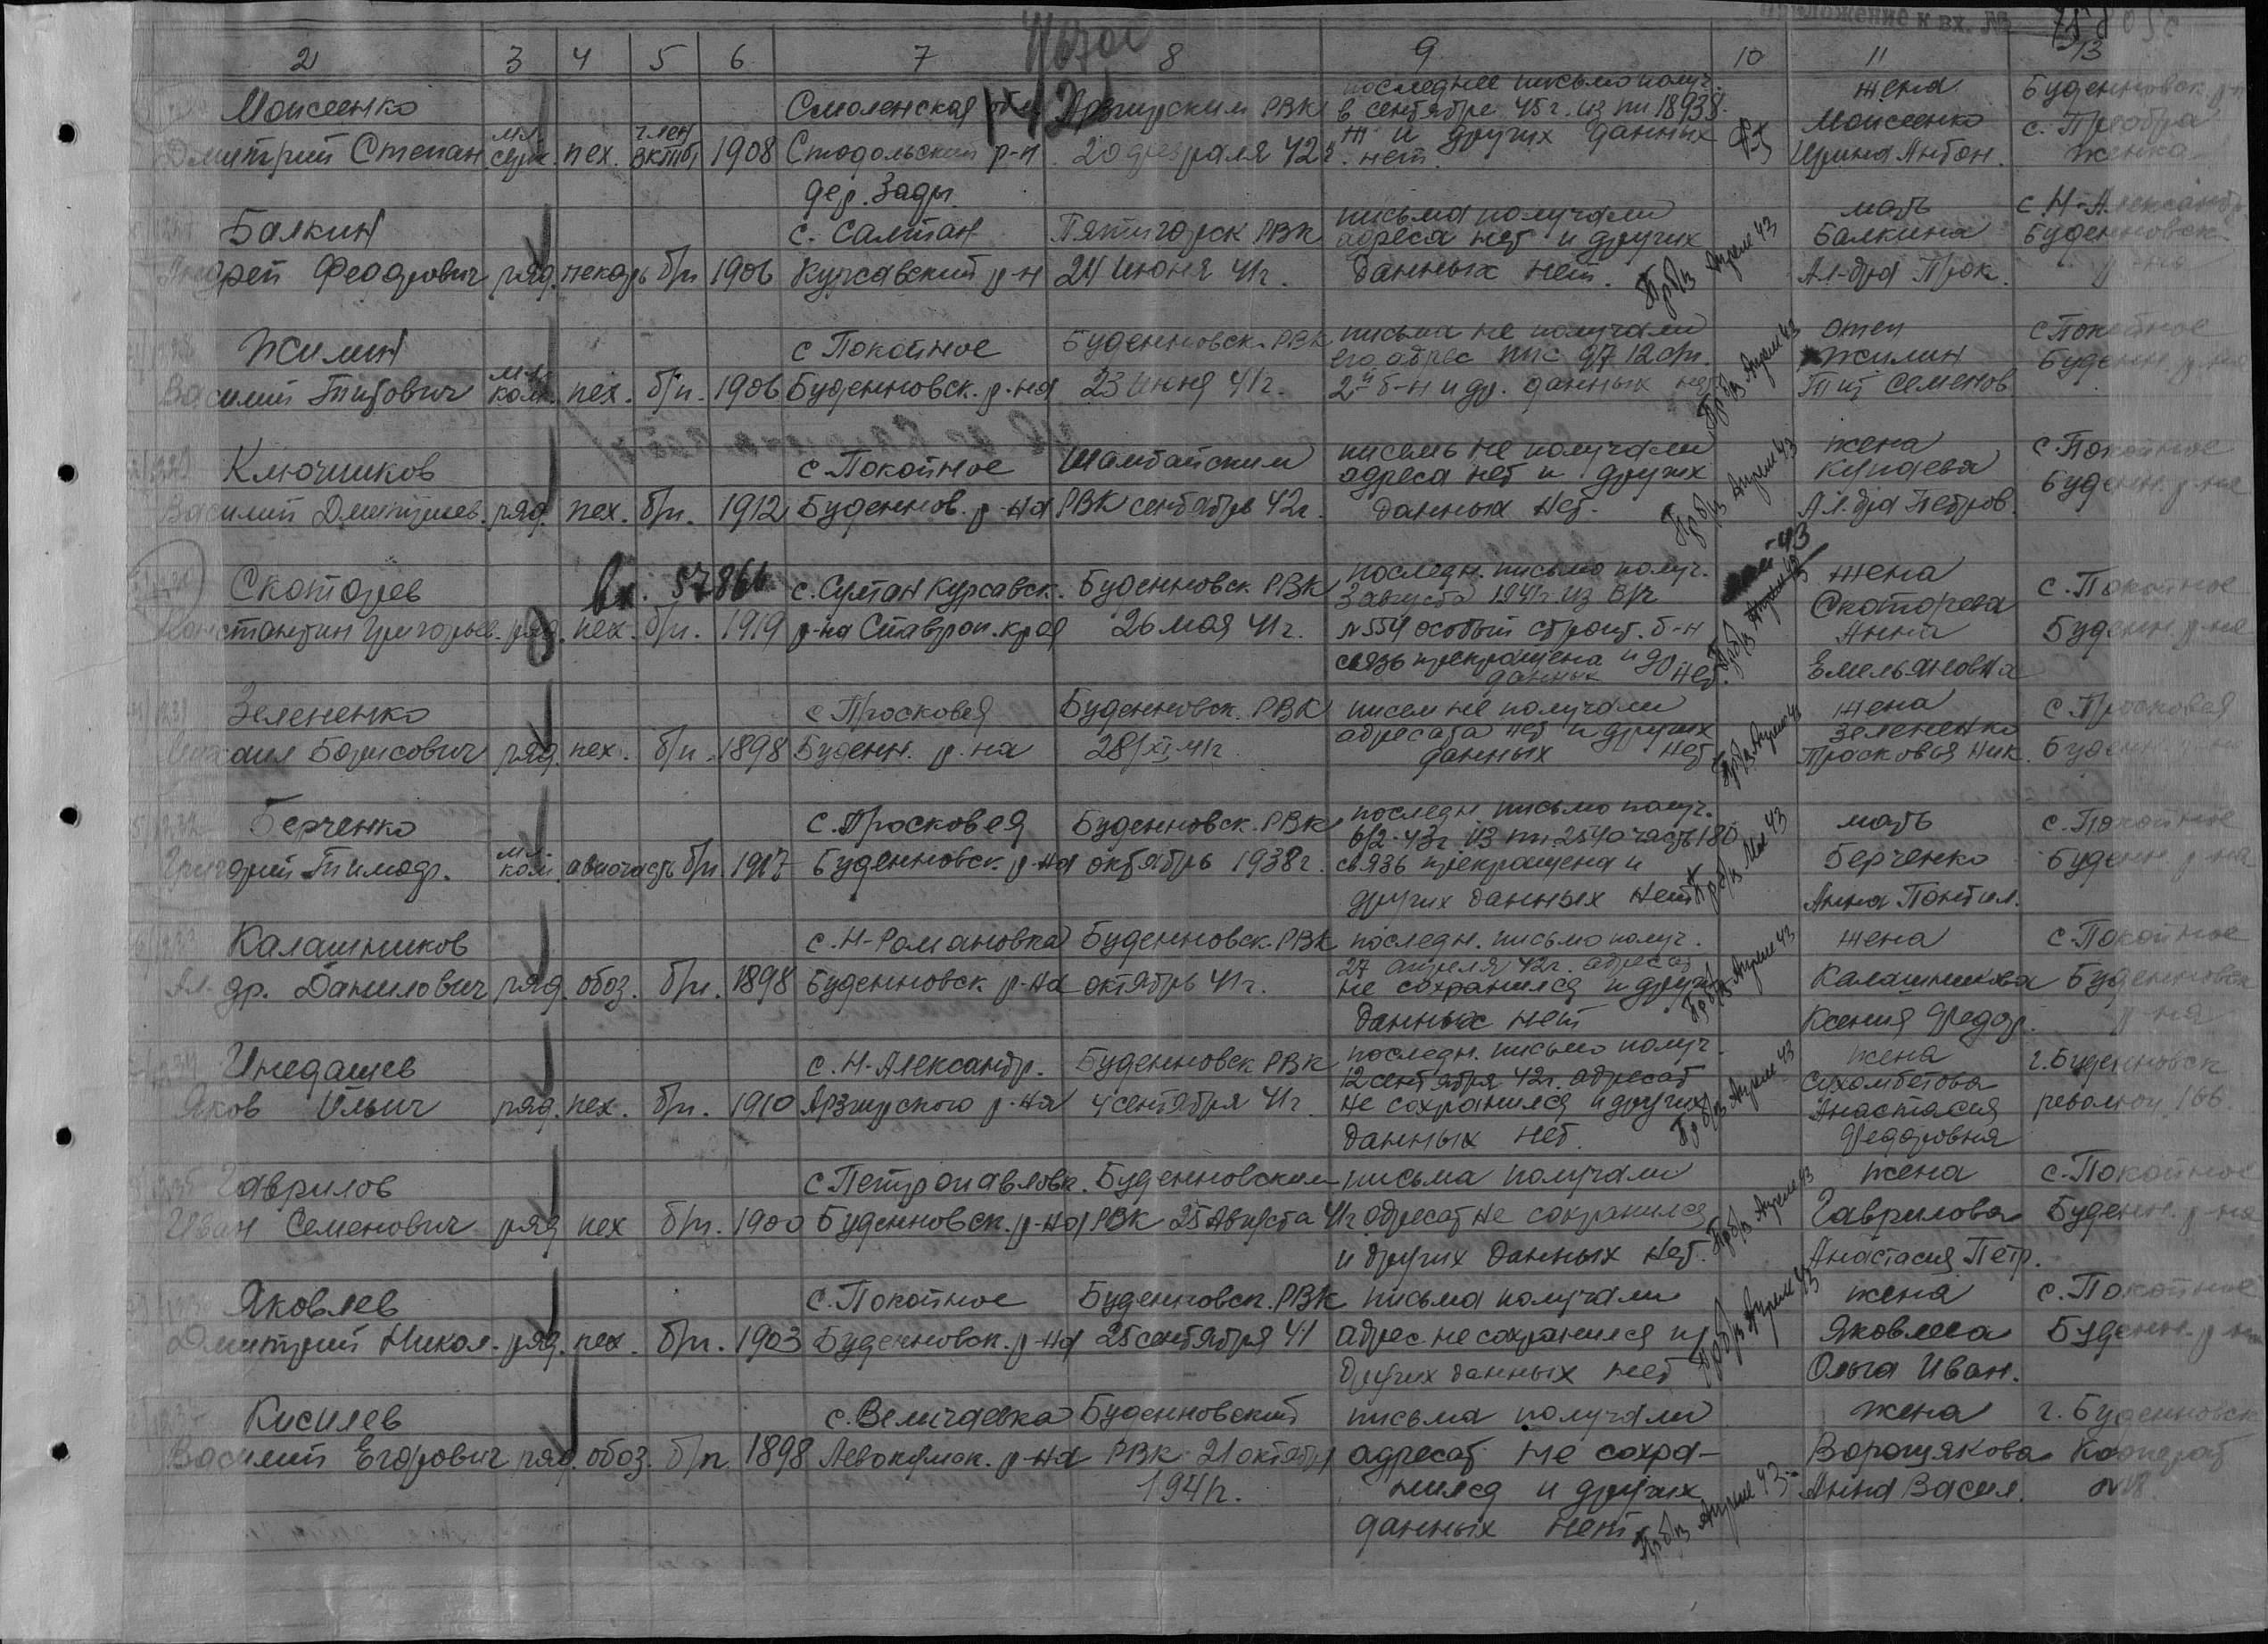 Приложение к вх. №
2 3 4 5 6 7 8 9 10 11 13
Моисеенко Дмитрий Степан. мл. серж. пех. член ВКП(б) 1908 Смоленская обл. Стодольский р-н дер. Зады. Арзгирским РВК 20 февраля 42 г. последнее письмо получ. в сентябре 45 г. из пп 18938 Ж и других данных нет. жена Моисеенко Ирина Антон. Буденновск р-н с. Преобра женка
Балкин Андрей Федорович ряд. пекарь б/п 1906 с. Салтан Курсавский р-н Пятигорск РВК 24 июня 41г. письма получали адреса нет и других данных нет. Пр б/в Апреле 43 мать Балкина Ал-дра Прок. с. Н-Александр. Буденновск. р-на
Жилин Василий Титович мл. ком. пех. б/п. 1906 с Покойное Буденновск. р-на Буденновск. РВК 23 Июня 41г. письма не получали его адрес ппс 97 12 2й б-н и др. данных нет Пр б/в Апреле 43 отец Жилин Тит Семенов. с Покойное Буденн. р-на
Ключников Василий Дмитриев. ряд. пех. б/п. 1912 с. Покойное Буденнов. р-на РВК сентябрь 42г. писем не получали адреса нет и других данных нет. Пр б/в Апреле 43 жена Ал.дра Петров. с. Покойное Буденн. р-не
Вх. 57866
Скоторев Константин Григорьев. ряд. пех. б/п. 1919 с. Султан Курсавск. р-на Ставроп. края Буденновск. РВК 26 мая 41г. последн. письмо получ. 3 августа 1941г. из в/ч №554 особый строит. б-н связь прекращена и др данных нет. Пр б/в 43 жена Скоторева Анна Емельяновна с. Покойное Буденн. р-не
Зелененко Михаил Борисович ряд. пех. б/п. 1898 с Прасковея Буденн. р-на Буденновск. РВК 28/XI 41г писем не получали адресата нет и других данных нет Пр б/в Апреле 43 жена Зелененко Прасковья Ник. с. Прасковея Буденн.
Берченко Григорий Тимоф. мл. ком. авиочасть б/п 1917 с. Просковея Буденновск. р-на Буденновск. РВК октябрь 1938г. последн. письмо получ. 6/2-43г из пп. 2540 часть 180 связь прекращена и других данных нет Пр б/в Мае 43 мать Берченко Анна Пантил. с. Покойное Буденн. р-на
Калашников Ал-др. Данилович ряд. обоз. б/п. 1898 с. Н-Романовка Буденновск р-на Буденновск. РВК октябрь 41г. последн. письмо получ. 27 апреля 42г. адресат не сохранился и других данных нет Пр б/в Апреле 43 жена Калашникова Ксения Федор. с. Покойное Буденновск р-на
Инедашев Яков Ильич ряд. пех. б/п. 1910 с. Н-Александр. Арзгирского р-на Буденновск РВК 4 сентября 41г. последн. письмо получ. 12 сентября 42г. адресат не сохранился и других данных нет. Пр б/в Апреле 43 жена Анастасия Федоровна г. Буденновск револ 166
Гаврилов Иван Семенович ряд пех б/п. 1900 с Петропавловк. Буденновск. р-на Буденновским РВК 25 Августа 41г письма получали адресат не сохранился и других данных нет. Пр б/в Апреле 43 жена Гаврилова Анастасия Петр. с. Покойное Буденн. р-на
Яковлев Дмитрий Никол. ряд. пех. б/п. 1903 с. Покойное Буденновск. р-на Буденновск. РВК 25 сентября 41 письма получали адрес не сохранился и других данных нет Пр б/в Апреле 43 жена Яковлева Ольга Иван. с. Покойное Буденн. р-на
Кисилев Василий Егорович ряд. обоз. б/п. 1898 с. Величаевка Левокумск. р-на Буденновский РВК 21 октября 1941г. письма получали адресат не сохра- нился и других данных нет Пр б/в Апреле 43 жена Анна Васил. г. Буденновск